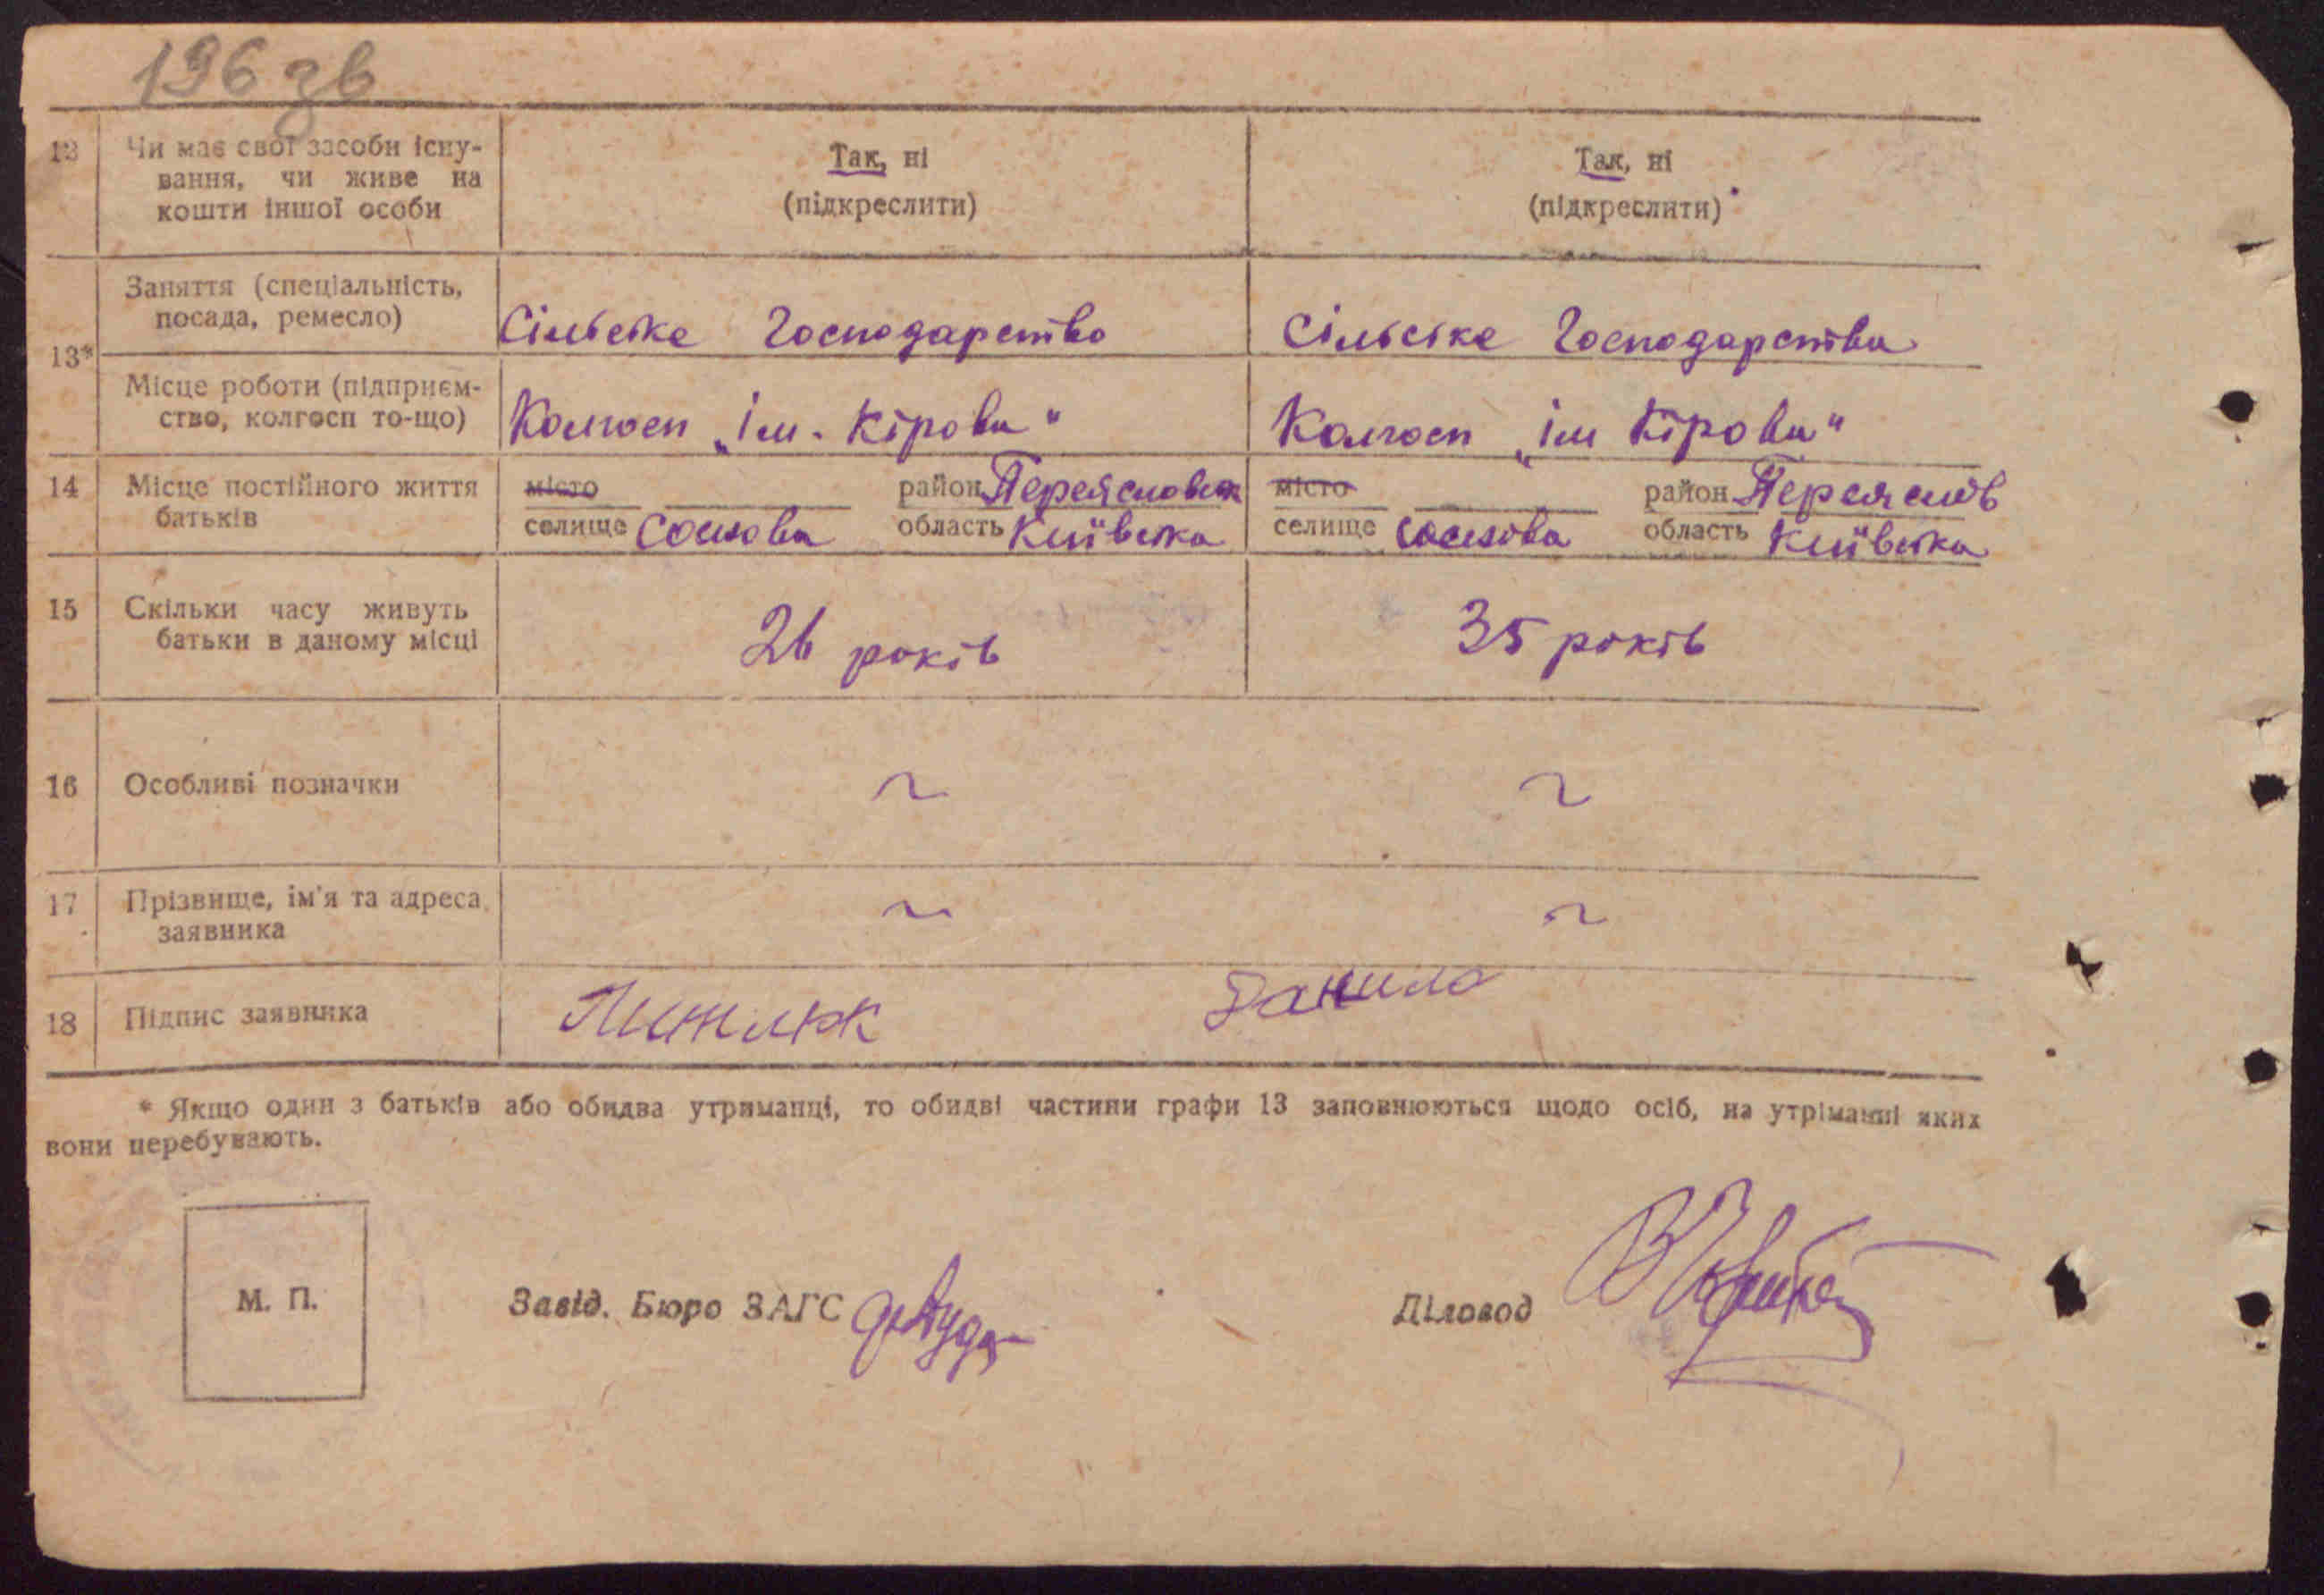 196 зв
12 Чи має свої засоби існу- Так, ні Так, ні
вання, чи живе на
кошти іншої особи (підкреслити) (підкреслити)
Заняття (спеціальність,
посада, ремесло) Сільське Господарство Сільське Господарства
13*
Місце роботи (підприєм-
ство, колгосп то-що) Колгосп „ім. Кірова" Колгосп „ім Кірова"
14 Місце постійного життя місто район Переяславськ місто район Переяслів
батьків селище Соснова область Київська селище Соснова область Київська
15 Скільки часу живуть
батьки в даному місці 26 років 35 років
16 Особливі позначки ~ ~
17 Прізвище, ім'я та адреса ~ ~
заявника
18 Підпис заявника Данило
* Якщо один з батьків або обидва утриманці, то обидві частини графи 13 заповнюються щодо осіб, на утріманні яких
вони перебувають.
М. П. Завід. Бюро ЗАГС Діловод